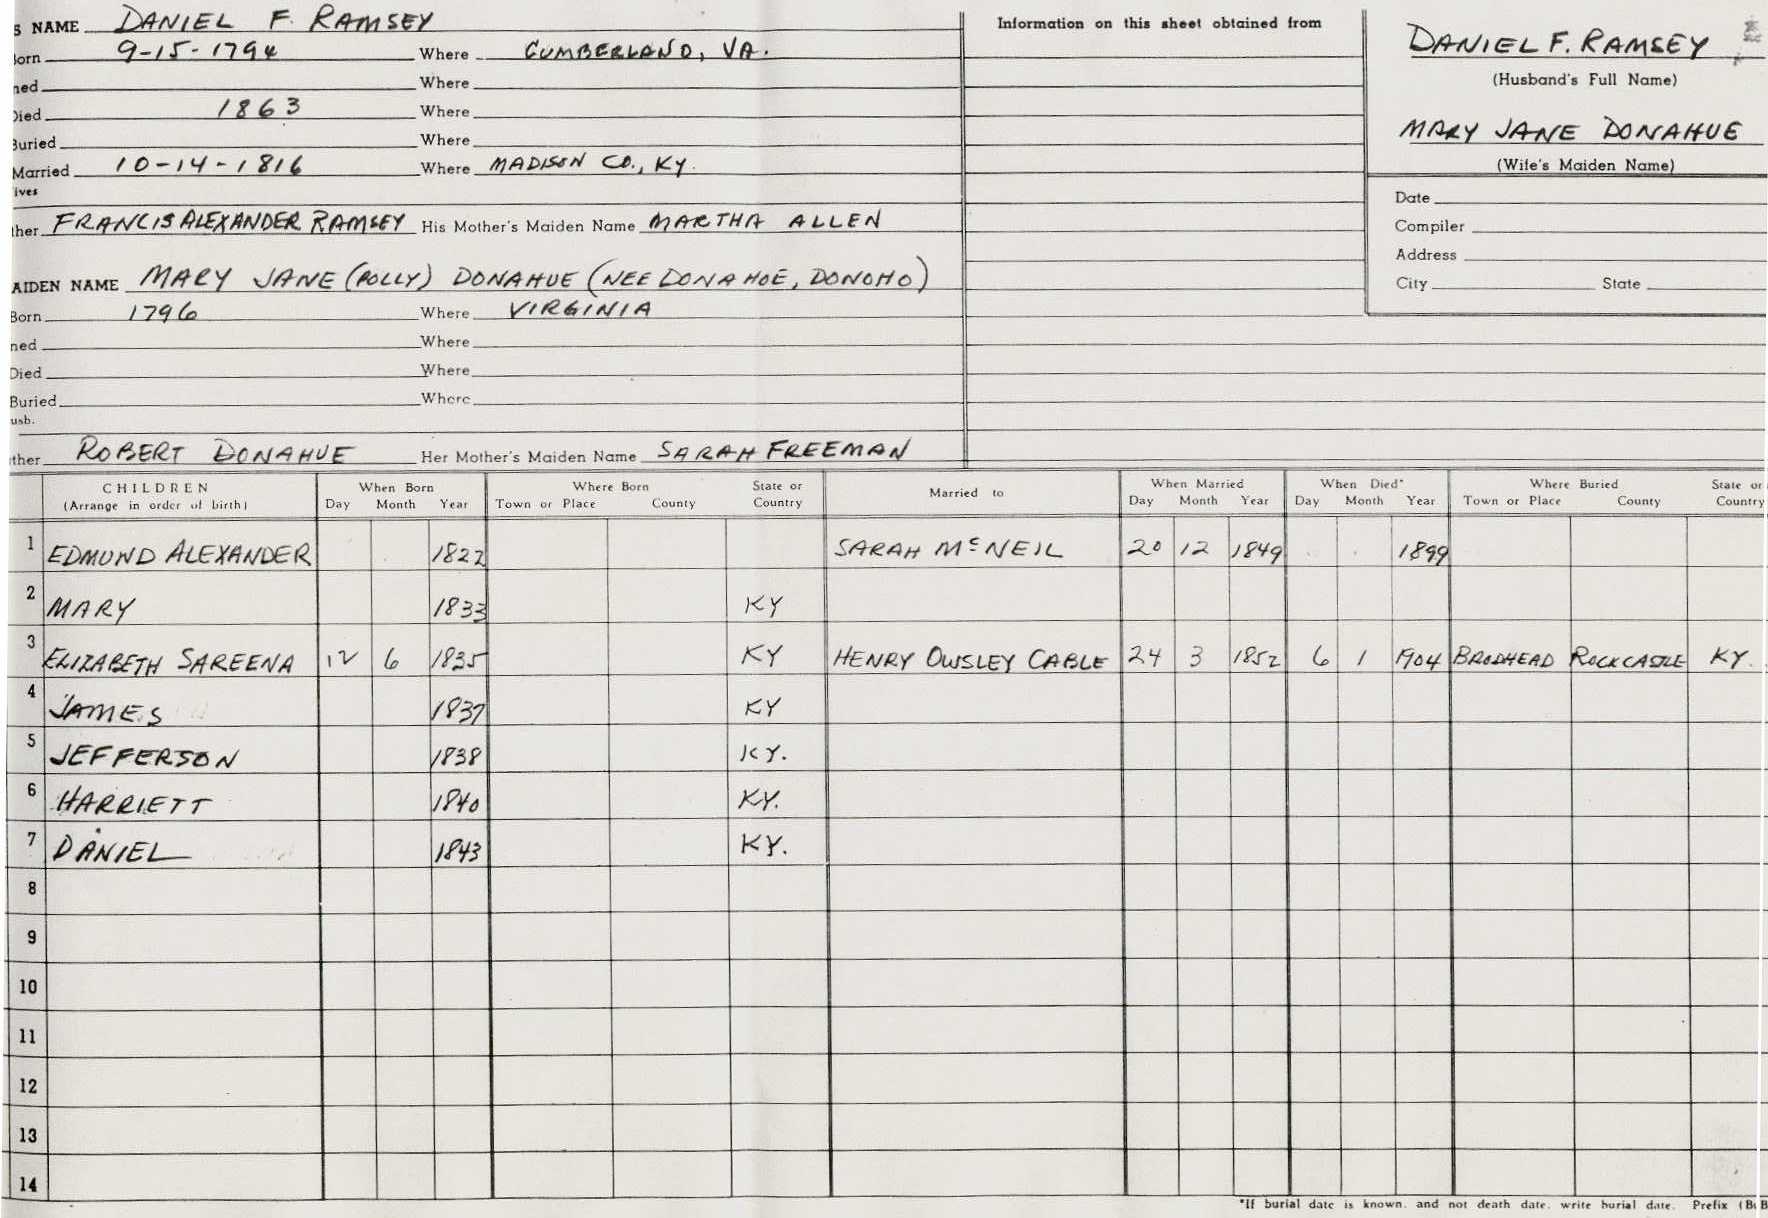 S NAME DANIEL F. RAMSEY
Born 9-15-1794 Where CUMBERLAND, VA.
ned Where
Died 1863 Where
Buried Where
Married 10-14-1816 Where MADISON CO., KY.
ives
ther FRANCIS ALEXANDER RAMSEY His Mother's Maiden Name MARTHA ALLEN
AIDEN NAME MARY JANE (POLLY) DONAHUE (NEE DONAHOE, DONOHO)
Born 1796 Where VIRGINIA
ned Where
Died Where
Buried Where
usb.
ther ROBERT DONAHUE Her Mother's Maiden Name SARAH FREEMAN
Information on this sheet obtained from
DANIEL F. RAMSEY
(Husband's Full Name)
MARY JANE DONAHUE
(Wife's Maiden Name)
Date
Compiler
Address
City State
CHILDREN When Born Where Born State or Married to When Married When Died* Where Buried State or
(Arrange in order of birth) Day Month Year Town or Place County Country Day Month Year Day Month Year Town or Place County Country
1 EDMUND ALEXANDER 1822 SARAH McNEIL 20 12 1849 1899
2 MARY 1833 KY
3 ELIZABETH SAREENA 12 6 1835 KY HENRY OWSLEY CABLE 24 3 1852 6 1 1904 BRODHEAD ROCKCASTLE KY.
4 JAMES 1837 KY
5 JEFFERSON 1838 KY.
6 HARRIETT 1840 KY.
7 DANIEL 1843 KY.
8
9
10
11
12
13
14
*If burial date is known, and not death date, write burial date. Prefix (Bu